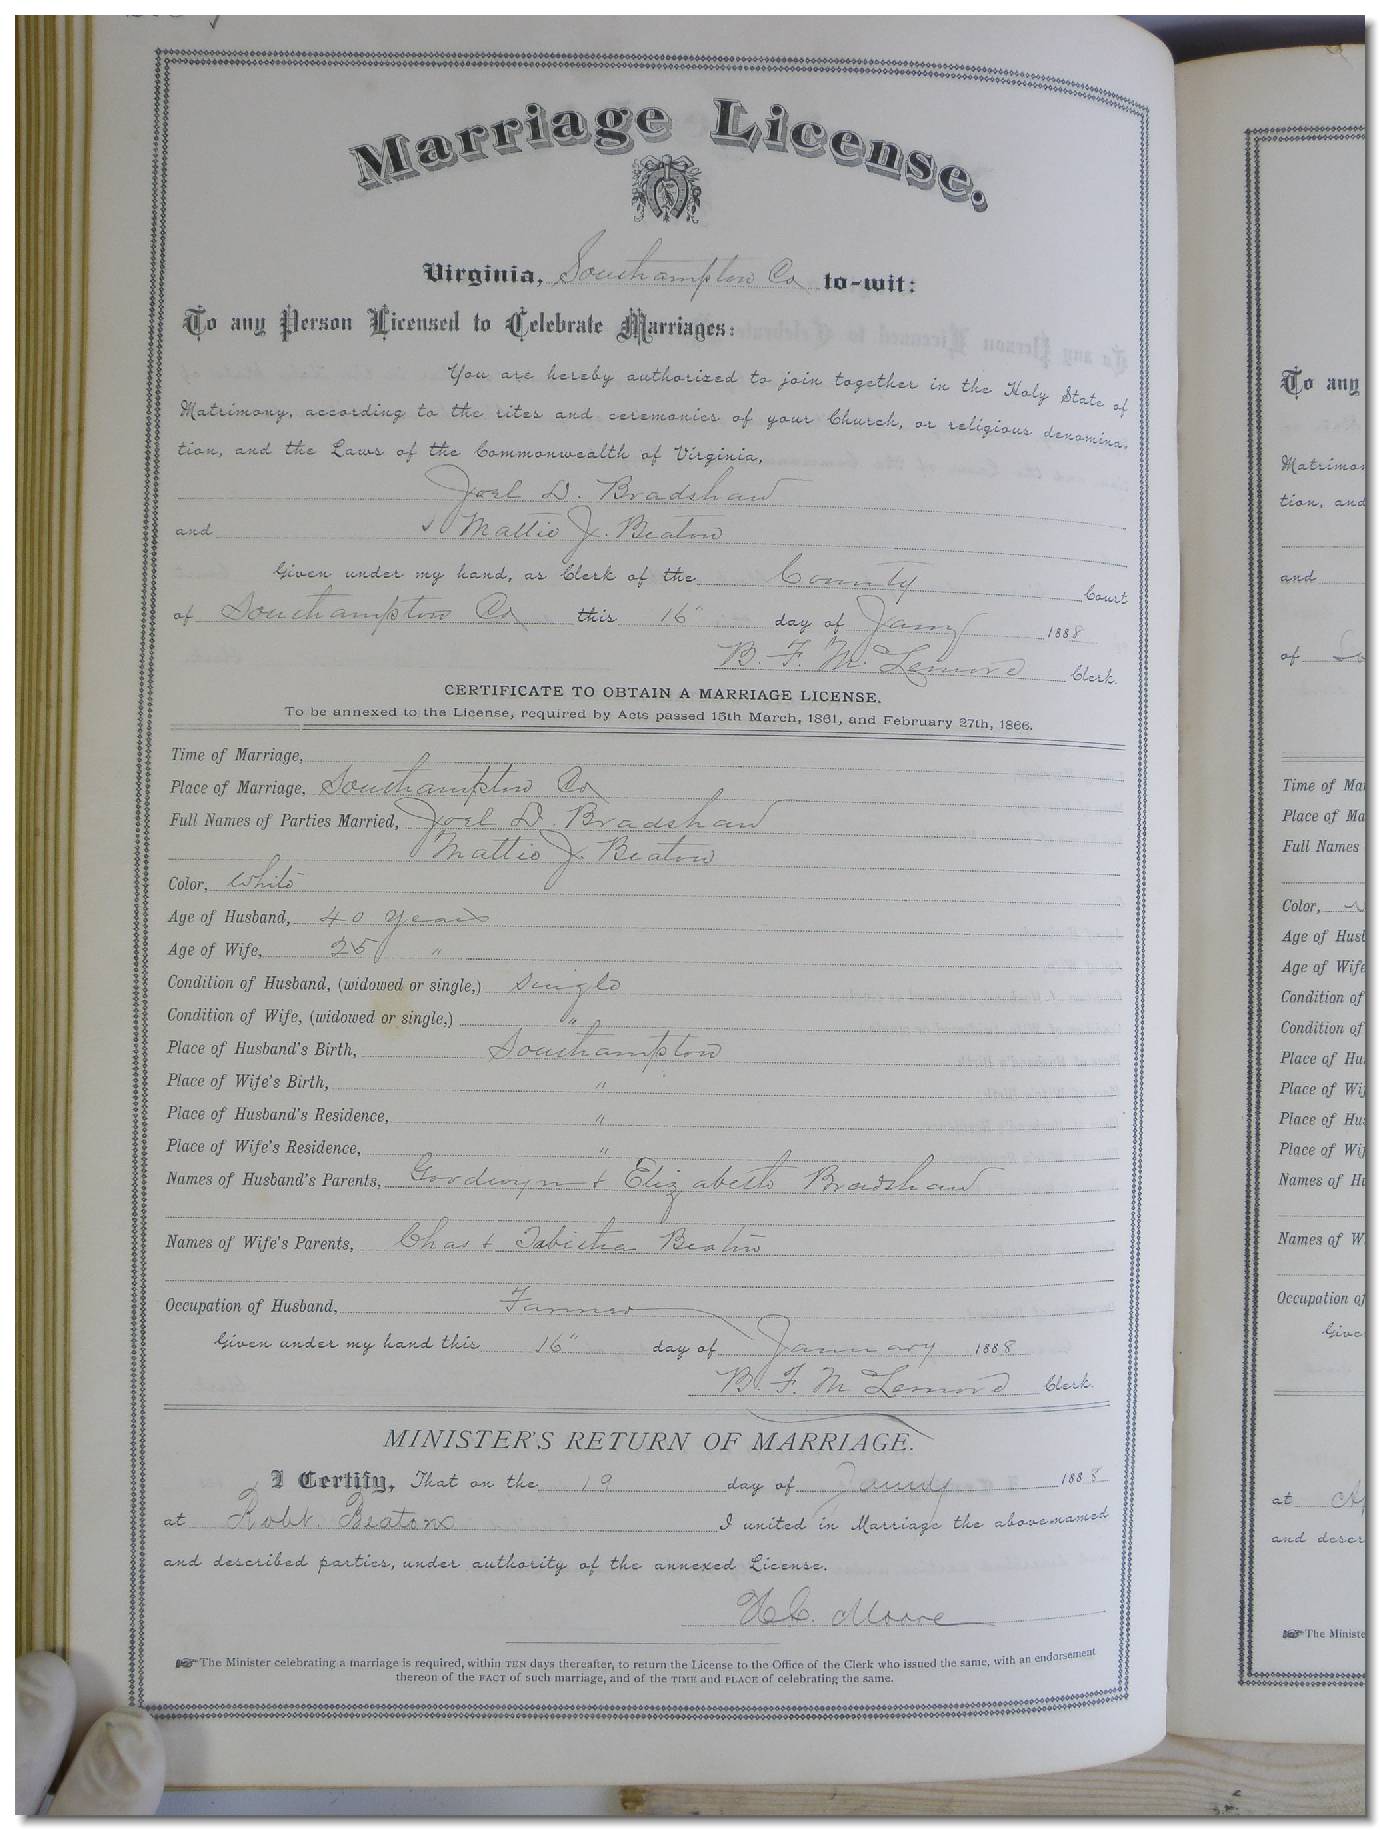 Marriage License.
Virginia, Southampton Co to-wit:
To any Person Licensed to Celebrate Marriages:
You are hereby authorized to join together in the Holy State of
Matrimony, according to the rites and ceremonies of your Church, or religious denomina-
tion, and the Laws of the Commonwealth of Virginia,
Joel D. Bradshaw
and Mattie J. Beaton
Given under my hand, as Clerk of the County Court
of Southampton Co this 16" day of Jany 1888
B. F. McLemore Clerk.
CERTIFICATE TO OBTAIN A MARRIAGE LICENSE.
To be annexed to the License, required by Acts passed 15th March, 1861, and February 27th, 1866.
Time of Marriage,
Place of Marriage, Southampton Co
Full Names of Parties Married, Joel D Bradshaw
Mattie J. Beaton
Color, White
Age of Husband, 40 years
Age of Wife, 25 "
Condition of Husband, (widowed or single,) Single
Condition of Wife, (widowed or single,) "
Place of Husband's Birth, Southampton
Place of Wife's Birth, "
Place of Husband's Residence, "
Place of Wife's Residence, "
Names of Husband's Parents, Goodwyn + Elizabeth Bradshaw
Names of Wife's Parents, Chas + Tabitha Beaton
Occupation of Husband, Farmer
Given under my hand this 16" day of January 1888
B. F. McLemore Clerk.
MINISTER'S RETURN OF MARRIAGE.
I Certify, That on the 19 day of Jany 1888
at Robt Beatons I united in Marriage the above-named
and described parties, under authority of the annexed License.
Moore
The Minister celebrating a marriage is required, within TEN days thereafter, to return the License to the Office of the Clerk who issued the same, with an endorsement
thereon of the FACT of such marriage, and of the TIME and PLACE of celebrating the same.
To any
Matrimo
tion, and
and
of
Time of Ma
Place of Ma
Full Names
Color,
Age of Husb
Age of Wife
Condition of
Condition of
Place of Hu
Place of Wi
Place of Hu
Place of Wi
Names of Hu
Names of W
Occupation of
Give
at
and descr
The Ministe